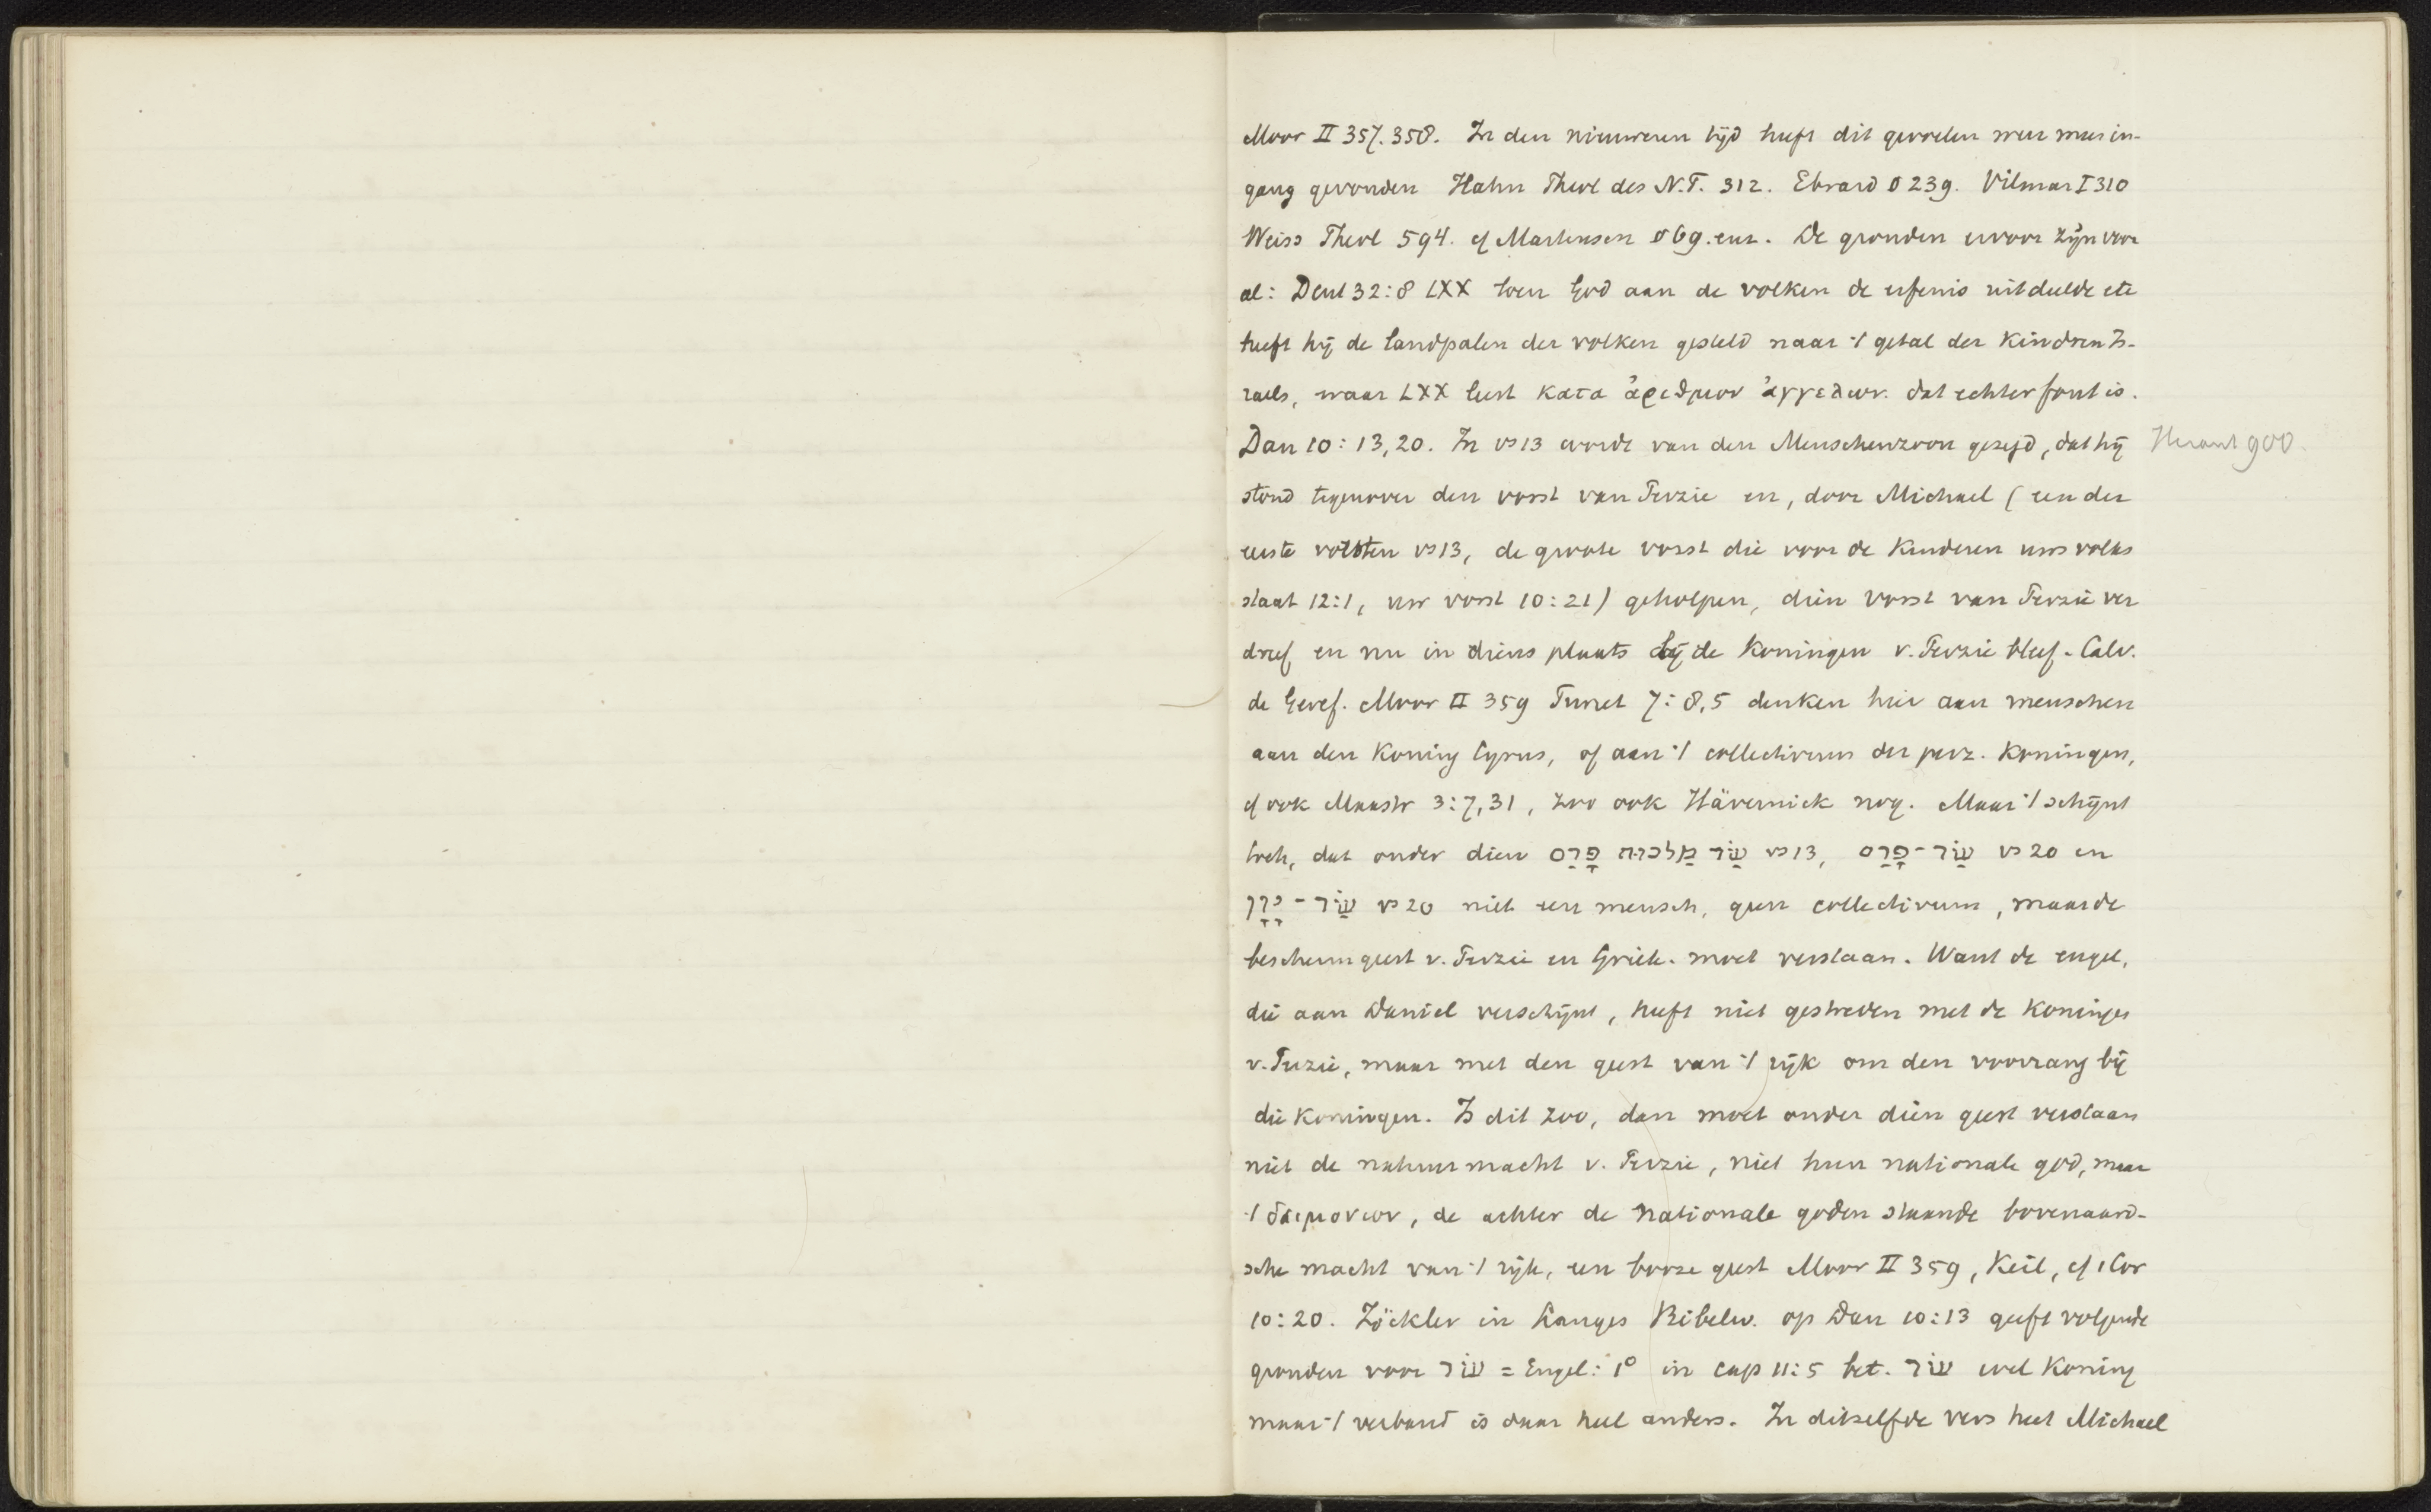 Moor II 357.358. In den nieuweren tijd heeft dit gevoelen weer meer in-
gang gevonden Hahn Theol des N.T. 312. Ebrard § 239. Vilmar I 310
Weiss Theol 594. cf Martensen § 69. enz. De gronden ervoor zijn voor
al: Deut 32:8 LXX toen God aan de volken de erfenis uitdeelde etc
heeft hij de landpalen der volken gesteld naar 't getal der kindren Is-
raels, waar LXX leest κατα ἀριθμον ἀγγελων. dat echter fout is.
Dan 10:13,20. In vs 13 wordt van den Menschenzoon gezegd, dat hij
stond tegenover den vorst van Perzie en, door Michael (een der
eerste vorsten vs 13, de groote vorst die voor de kinderen uws volks
staat 12:1, uw vorst 10:21) geholpen, dien vorst van Perzie ver
dreef en nu in diens plaats bij de koningen v. Perzie bleef. Calv.
de Geref. Moor II 359 Turret 7:8,5 denken hier aan menschen
aan den koning Cyrus, of aan 't collectivum der perz. koningen,
cf ook Maastr 3:7,31, zoo ook Hävernick nog. Maar 't schijnt
toch, dat onder dien שַׂר מַלְכות פָּרַס vs 13, שַׂר-פָּרַס vs 20 en
שַׂר-יָוָן vs 20 niet een mensch, geen collectivum, maar de
beschermgeest v. Perzie en Griek. moet verstaan. Want de engel,
die aan Daniel verschijnt, heeft niet gestreden met de koningen
v. Perzie, maar met den geest van 't rijk om den voorrang bij
die koningen. Is dit zoo, dan moet onder dien geest verstaan
niet de natuurmacht v. Perzie, niet hun nationale god, maar
't δαιμονιον, de achter de nationale goden staande bovenaard-
sche macht van 't rijk, een booze geest Moor II 359, Keil, cf 1 Cor
10:20. Zöckler in Langes Bibelw. op Dan 10:13 geeft volgende
gronden voor שַׂר = Engel: 1° in cap 11:5 bet. שַׂר wel koning
maar 't verband is daar heel anders. In ditzelfde vers heet Michael
900.